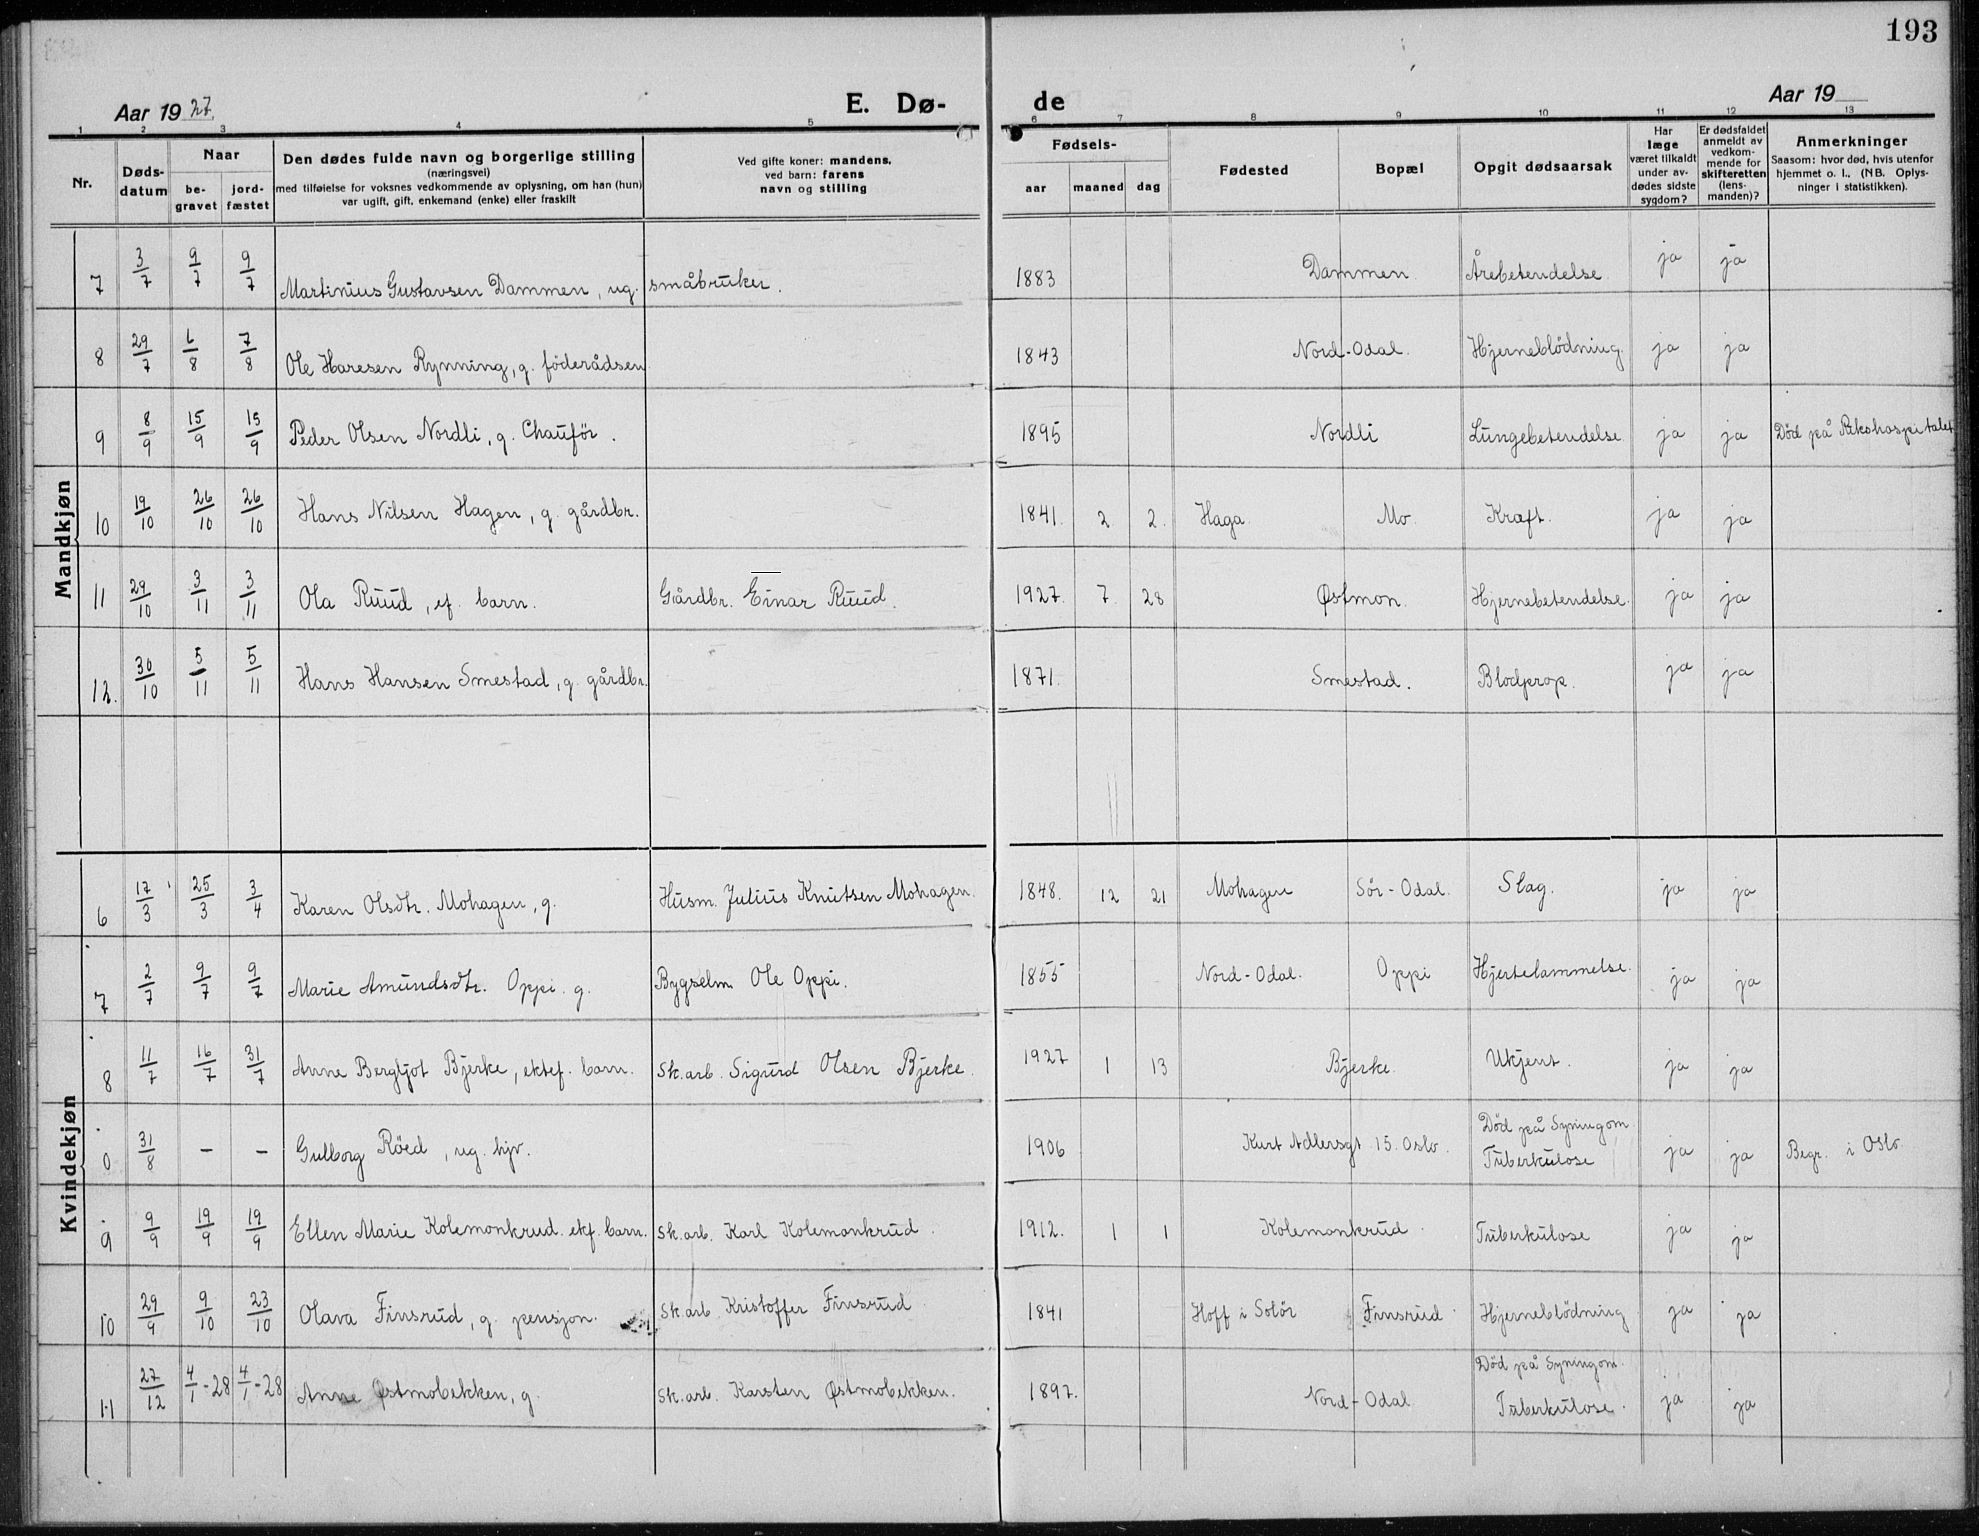 193
Aar 1927. E. Dø- de Aar 19
1 2 3 4 5 6 7 8 9 10 11 12 13
Nr. Døds-datum Naar be-gravet jord-fæstet Den dødes fulde navn og borgerlige stilling (næringsvei) med tilføielse for voksnes vedkommende av oplysning, om han (hun) var ugift, gift, enkemand (enke) eller fraskilt Ved gifte koner: mandens, ved barn: farens navn og stilling Fødsels- aar maaned dag Fødested Bopæl Opgit dødsaarsak Har læge været tilkaldt under av-dødes sidste sygdom? Er dødsfaldet anmeldt av vedkom-mende for skifteretten (lens-manden)? Anmerkninger Saasom: hvor død, hvis utenfor hjemmet o. l., (NB. Oplys-ninger i statistikken).
Mandkjøn
7 3/7 9/7 9/7 Martinius Gustavsen Dammen, ug. småbruker. 1883 Dammen. Årebetendelse ja ja
8 29/7 6/8 7/8 Ole Haresen Rynning, g. föderådsen 1843 Nord-Odal. Hjerneblödning. ja ja
9 8/9 15/9 15/9 Peder Olsen Nordli, g. Chauför. 1895 Nordli Lungebetendelse ja ja Död på Rikshospitalet
10 19/10 26/10 26/10 Hans Nilsen Hagen, g. gårdbr. 1841. 2 2. Haga. Mo. Kræft. ja ja
11 29/10 3/11 3/11 Ola Ruud, ef. barn. Gårdbr. Einar Ruud. 1927. 7. 28 Østmon. Hjernebetendelse. ja ja
12. 30/10 5/11 5/11 Hans Hansen Smestad, g. gårdbr. 1871. Smestad. Blodprop. ja ja
Kvindekjøn
6 17/3 25/3 3/4 Karen Olsdtr. Mohagen, g. Husm. Julius Knutsen Mohagen. 1848. 12 21 Mohagen Sör-Odal. Slag. ja ja
7 2/7 9/7 9/7 Marie Amundsdtr. Oppi. g. Bygselm. Ole Oppi. 1855 Nord-Odal. Oppi Hjertelammelse. ja ja
8 11/7 16/7 31/7 Anne Bergljot Bjerke, ektef. barn. Sk.arb. Sigurd Olsen Bjerke. 1927 1 13 Bjerke. Ukjent. ja ja
0 31/8 - - Gulborg Röed, ug. hjv. 1906 Kurt Adlersgt 15. Oslo. Död på Syningom Tuberkulose ja ja Begr. i Oslo
9 9/9 19/9 19/9 Ellen Marie Kolemonkrud. ekf. barn. Sk.arb. Karl Kolemonkrud. 1912. 1 1 Kolemonkrud. Tuberkulose ja ja
10 29/9 9/10 23/10 Olava Finsrud, g. pensjon. Sk.arb. Kristoffer Finsrud 1841 Hoff i Solör Finsrud Hjerneblödning ja ja
11 27/12 4/1-28 4/1-28 Anne Østmobekken, g. Sk.arb. Karsten Østmobekken. 1897. Nord-Odal Död på Syningom. Tuberkulose. ja ja